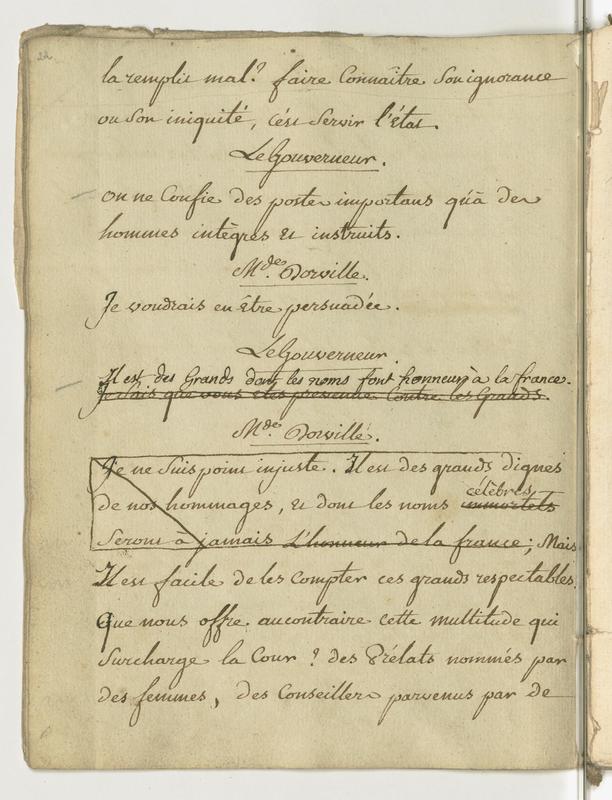 22
la remplit mal? faire Connaître Son ignorance
ou Son iniquité, c'est Servir l'état.
Le Gouverneur.
on ne Confie des postes importans qu'à des
hommes intègres et instruits.
M.de Dorville.
Je voudrais en être persuadée.
Le Gouverneur.
Il est des Grands dont les noms font honneur à la france.
Je Sais que vous etes prevenue Contre les Grands.
M.de Dorville.
Je ne Suis point injuste. Il est des grands dignes
célèbres
de nos hommages, et dont les noms immortels
Seront à jamais L'honneur de la france; Mais
Il est facile de les Compter ces grands respectables.
Que nous offre aucontraire cette multitude qui
Surcharge la Cour? des Prélats nommés par
des femmes, des Conseillers parvenus par de